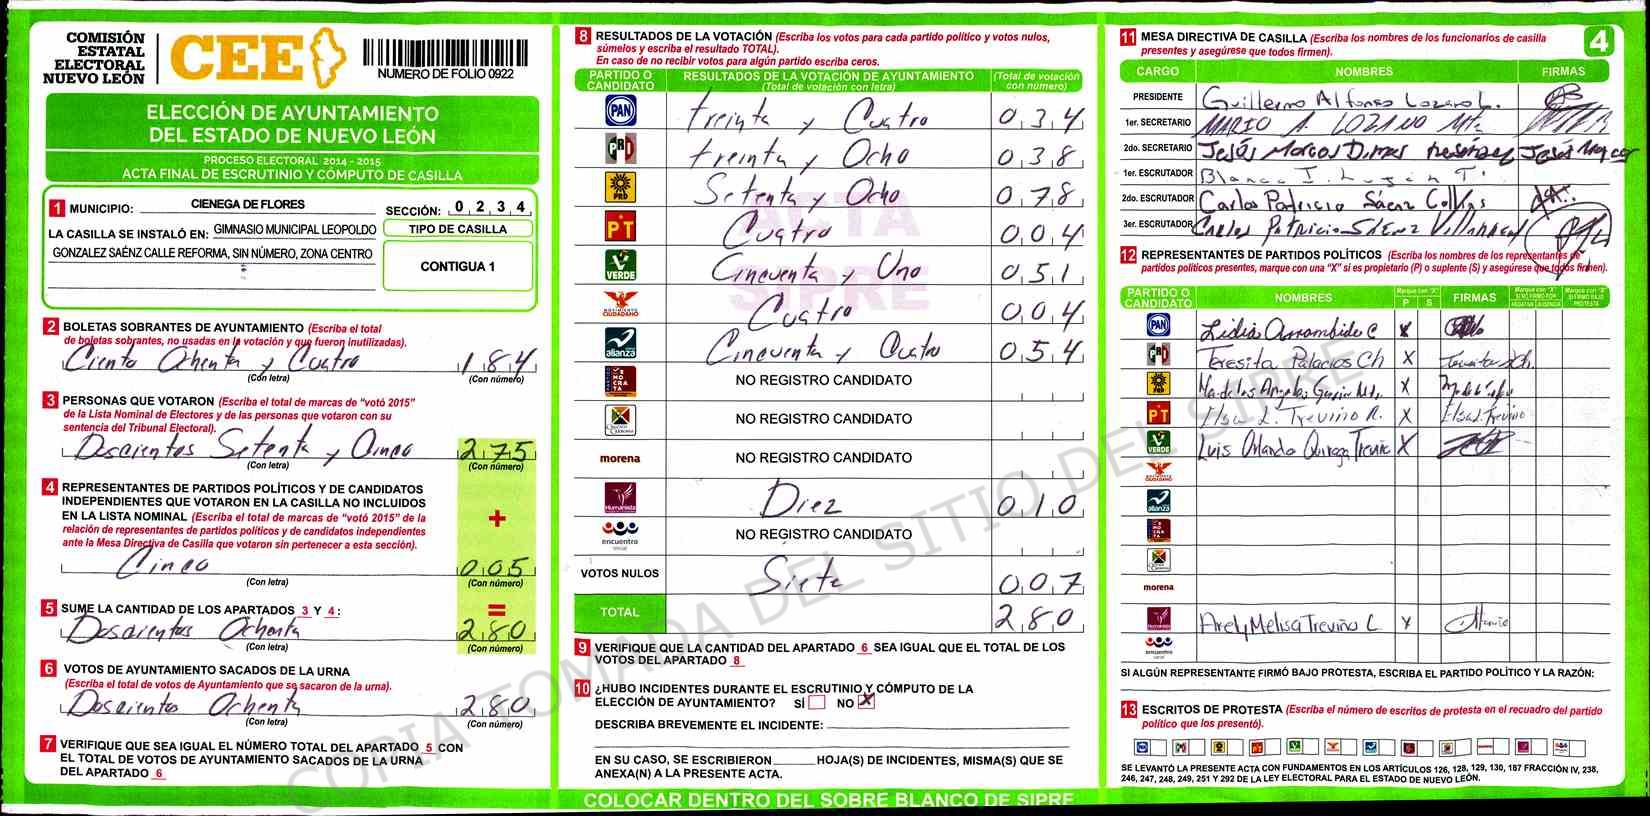 COMISIÓN
ESTATAL
ELECTORAL
NUEVO LEÓN
CEE
NUMERO DE FOLIO 0922
ELECCIÓN DE AYUNTAMIENTO
DEL ESTADO DE NUEVO LEÓN
PROCESO ELECTORAL 2014 - 2015
ACTA FINAL DE ESCRUTINIO Y CÓMPUTO DE CASILLA
1 MUNICIPIO: CIENEGA DE FLORES SECCIÓN: 0 2 3 4
LA CASILLA SE INSTALÓ EN: GIMNASIO MUNICIPAL LEOPOLDO
GONZALEZ SAÉNZ CALLE REFORMA, SIN NÚMERO, ZONA CENTRO
TIPO DE CASILLA
CONTIGUA 1
2 BOLETAS SOBRANTES DE AYUNTAMIENTO (Escriba el total
de boletas sobrantes, no usadas en la votación y que fueron inutilizadas).
Ciento Ochenta y Cuatro 184
(Con letra) (Con número)
3 PERSONAS QUE VOTARON (Escriba el total de marcas de "votó 2015"
de la Lista Nominal de Electores y de las personas que votaron con su
sentencia del Tribunal Electoral).
Doscientos Setenta y Cinco 275
(Con letra) (Con número)
4 REPRESENTANTES DE PARTIDOS POLÍTICOS Y DE CANDIDATOS
INDEPENDIENTES QUE VOTARON EN LA CASILLA NO INCLUIDOS
EN LA LISTA NOMINAL (Escriba el total de marcas de "votó 2015" de la
relación de representantes de partidos políticos y de candidatos independientes
ante la Mesa Directiva de Casilla que votaron sin pertenecer a esta sección).
+
Cinco 005
(Con letra) (Con número)
5 SUME LA CANTIDAD DE LOS APARTADOS 3 Y 4: =
Doscientos Ochenta 280
(Con letra) (Con número)
6 VOTOS DE AYUNTAMIENTO SACADOS DE LA URNA
(Escriba el total de votos de Ayuntamiento que se sacaron de la urna).
Doscientos Ochenta 280
(Con letra) (Con número)
7 VERIFIQUE QUE SEA IGUAL EL NÚMERO TOTAL DEL APARTADO 5 CON
EL TOTAL DE VOTOS DE AYUNTAMIENTO SACADOS DE LA URNA
DEL APARTADO 6
8 RESULTADOS DE LA VOTACIÓN (Escriba los votos para cada partido político y votos nulos,
súmelos y escriba el resultado TOTAL).
En caso de no recibir votos para algún partido escriba ceros.
PARTIDO O CANDIDATO RESULTADOS DE LA VOTACIÓN DE AYUNTAMIENTO (Total de votación con letra) (Total de votación con número)
PAN treinta y Cuatro 034
PRD treinta y Ocho 038
PRD Setenta y Ocho 078
PT Cuatro 004
VERDE Cincuenta y Uno 051
MOVIMIENTO CIUDADANO Cuatro 004
alianza Cincuenta y Cuatro 054
NO REGISTRO CANDIDATO
NO REGISTRO CANDIDATO
morena NO REGISTRO CANDIDATO
Humanista Diez 010
encuentro social NO REGISTRO CANDIDATO
VOTOS NULOS Siete 007
TOTAL 280
ACTA
SIPRE
9 VERIFIQUE QUE LA CANTIDAD DEL APARTADO 6 SEA IGUAL QUE EL TOTAL DE LOS
VOTOS DEL APARTADO 8
10 ¿HUBO INCIDENTES DURANTE EL ESCRUTINIO Y CÓMPUTO DE LA
ELECCIÓN DE AYUNTAMIENTO? SÍ NO X
DESCRIBA BREVEMENTE EL INCIDENTE:
EN SU CASO, SE ESCRIBIERON HOJA(S) DE INCIDENTES, MISMA(S) QUE SE
ANEXA(N) A LA PRESENTE ACTA.
COLOCAR DENTRO DEL SOBRE BLANCO DE SIPRE
11 MESA DIRECTIVA DE CASILLA (Escriba los nombres de los funcionarios de casilla
presentes y asegúrese que todos firmen).
4
CARGO NOMBRES FIRMAS
PRESIDENTE Guillermo Alfonso Lozano L.
1er. SECRETARIO MARIO A. LOZANO
2do. SECRETARIO Jesús Marcos Dimas
1er. ESCRUTADOR Blanca I. T.
2do. ESCRUTADOR Carlos Patricio Sáenz
3er. ESCRUTADOR Carlos Patricio Sáenz Villarreal
12 REPRESENTANTES DE PARTIDOS POLÍTICOS (Escriba los nombres de los representantes de
partidos políticos presentes, marque con una "X" si es propietario (P) o suplente (S) y asegúrese que todos firmen).
PARTIDO O CANDIDATO NOMBRES P S FIRMAS
PAN Lidia Arrambide C X
PRD Teresita Palacios Ch X
PRD Ma. de los Angeles X
PT Elsa L. Treviño R. X Elsa L. Treviño
VERDE Luis Orlando Quiroga Treviño X
MOVIMIENTO CIUDADANO
alianza
morena
Humanista Arely Melisa Treviño L X
encuentro social
SI ALGÚN REPRESENTANTE FIRMÓ BAJO PROTESTA, ESCRIBA EL PARTIDO POLÍTICO Y LA RAZÓN:
13 ESCRITOS DE PROTESTA (Escriba el número de escritos de protesta en el recuadro del partido
político que los presentó).
SE LEVANTÓ LA PRESENTE ACTA CON FUNDAMENTOS EN LOS ARTÍCULOS 126, 128, 129, 130, 187 FRACCIÓN IV, 238,
246, 247, 248, 249, 251 Y 292 DE LA LEY ELECTORAL PARA EL ESTADO DE NUEVO LEÓN.
COPIA TOMADA DEL SITIO DEL SIPRE